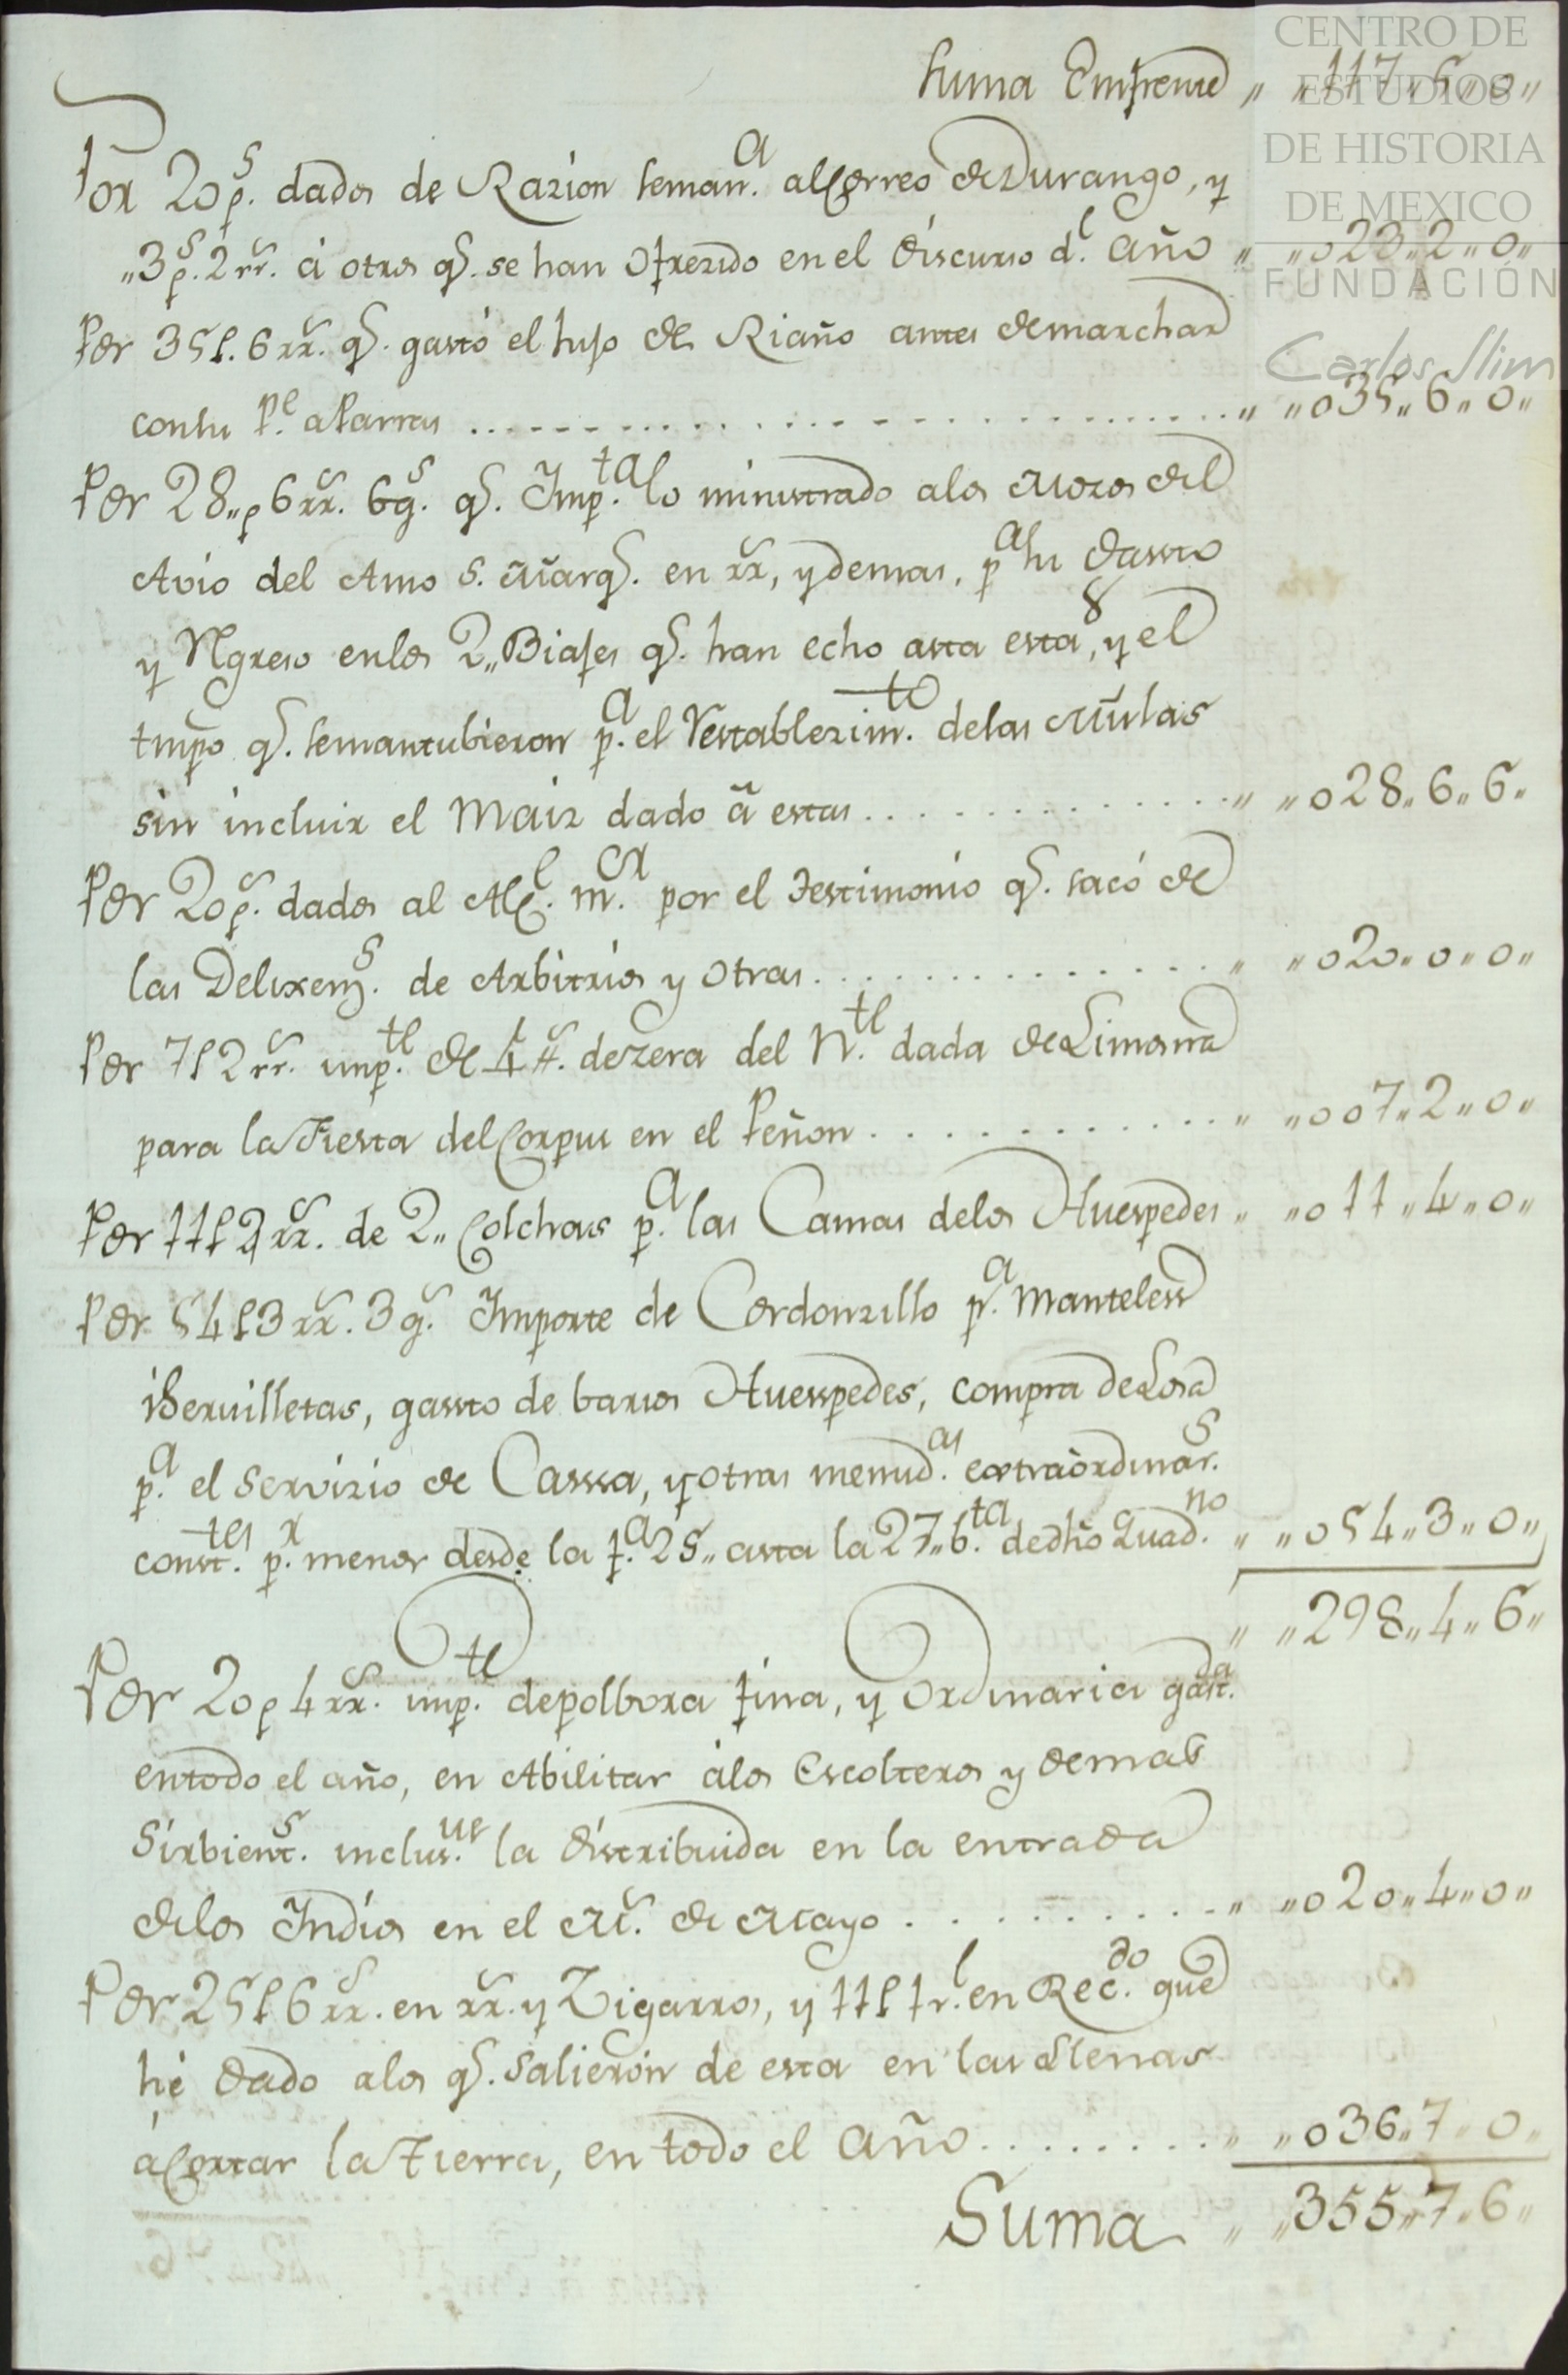 CENTRO DE
ESTUDIOS
DE HISTORIA
DE MEXICO
FUNDACIÓN
Carlos Slim
Suma Emfrente „ „117„5„0„
Por 20 p.s dados de Razion seman.a al Correo de Durango, y
„3 p.s 2 rr.s á otros q.e se han ofrezido en el discurso d.l año „ „023„2„0„
Por 35 p. 6 rr.s q.e gastó el hijo de Riaño antes de marchar
con su P.e a Parras ........ „ „035„6„0„
Por 28„p 6 rr.s 6 g.s q.e Imp.ta lo ministrado a los Mozos del
Avio del Amo S. Marq.s en rr.s, y demas, p.a su Gasto
y Ngreso en los 2„ Biajes q.e han echo asta esta 8, y el
tmpo q.e se mantubieron p.a el Restablezim.to de las Mulas
sin incluir el Maiz dado á estas ........ „ „028„6„6„
Por 20 p.s dados al Alc.e m.or por el Testimonio q.e sacó de
las Delixen.s de Arbitrios y otras ........ „ „020„0„0„
Por 7 p 2 rr.s imp.te de 4 tt.s de zera del N.te dada de Limosna
para la Fiesta del Corpus en el Peñon ........ „ „007„2„0„
Por 11 p 2 rr.s de 2„ Colchas p.a las Camas de los Huespedes „ „011„4„0„
Por 54 p 3 rr.s 3 g.s Importe de Cordonzillo p.a Manteles
i Servilletas, gassto de barios Huesspedes, compra de Losa
p.a el Servizio de Casssa, y otras menud.as extraordinar.s
const.tes p.r menor desde la f.a 25„ asta la 27„ b.ta de dho Quad.no „ „054„3„0„
„ „298„4„6„
Por 20 p 4 rr.s imp.te de polbora fina, y Ordinaria gast.da
en todo el año, en Abilitar á los Escolteros y demas
Sirbient.s inclus.ve la distribuida en la entrada
de los Indios en el M.s de Mayo ........ „ „020„4„0„
Por 25 p 6 rr.s en rr.s y Zigarros, y 11 p 1 r.l en Rec.do que
hé dado a los q.e Salieron de esta en las Llenas
á Cortar la Tierra, en todo el año ........ „ „036„7„0„
Suma „ „355„7„6„